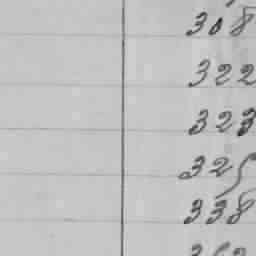 308
322
323
325
338